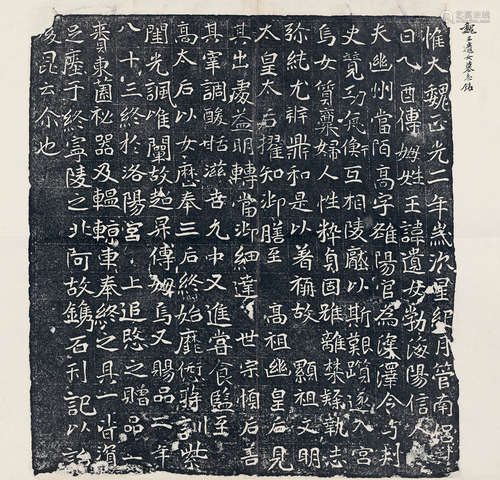 魏王遺女墓志銘
惟大魏正光二年歲次星紀月管南呂廿
日乙酉傅姆姓王諱遺女勃海陽信人
夫幽州當陌高字雒陽官為深澤令与刺
史競功亢衡互相陵壓以斯艱躓遂入宮
焉女質稟婦人性粹貞固雖離禁隸執志
弥純尤辨鼎和是以著稱故　顯祖文明
太皇太后擢知御膳至　高祖幽皇后見
其出處益明轉當御細達　世宗順后善
其宰調酸甜滋味允中又進嘗食監至
高太后以女歷奉三后終始靡愆蔣訓紫
閨光諷唯闡故超昇傅姆焉又賜品二年
八十三終於洛陽宮　上追愍之贈品一
賚東薗秘器及轀輬車奉終之具一皆資
之瘞于終寧陵之北阿故鐫石刊記以詒
後昆云尒也